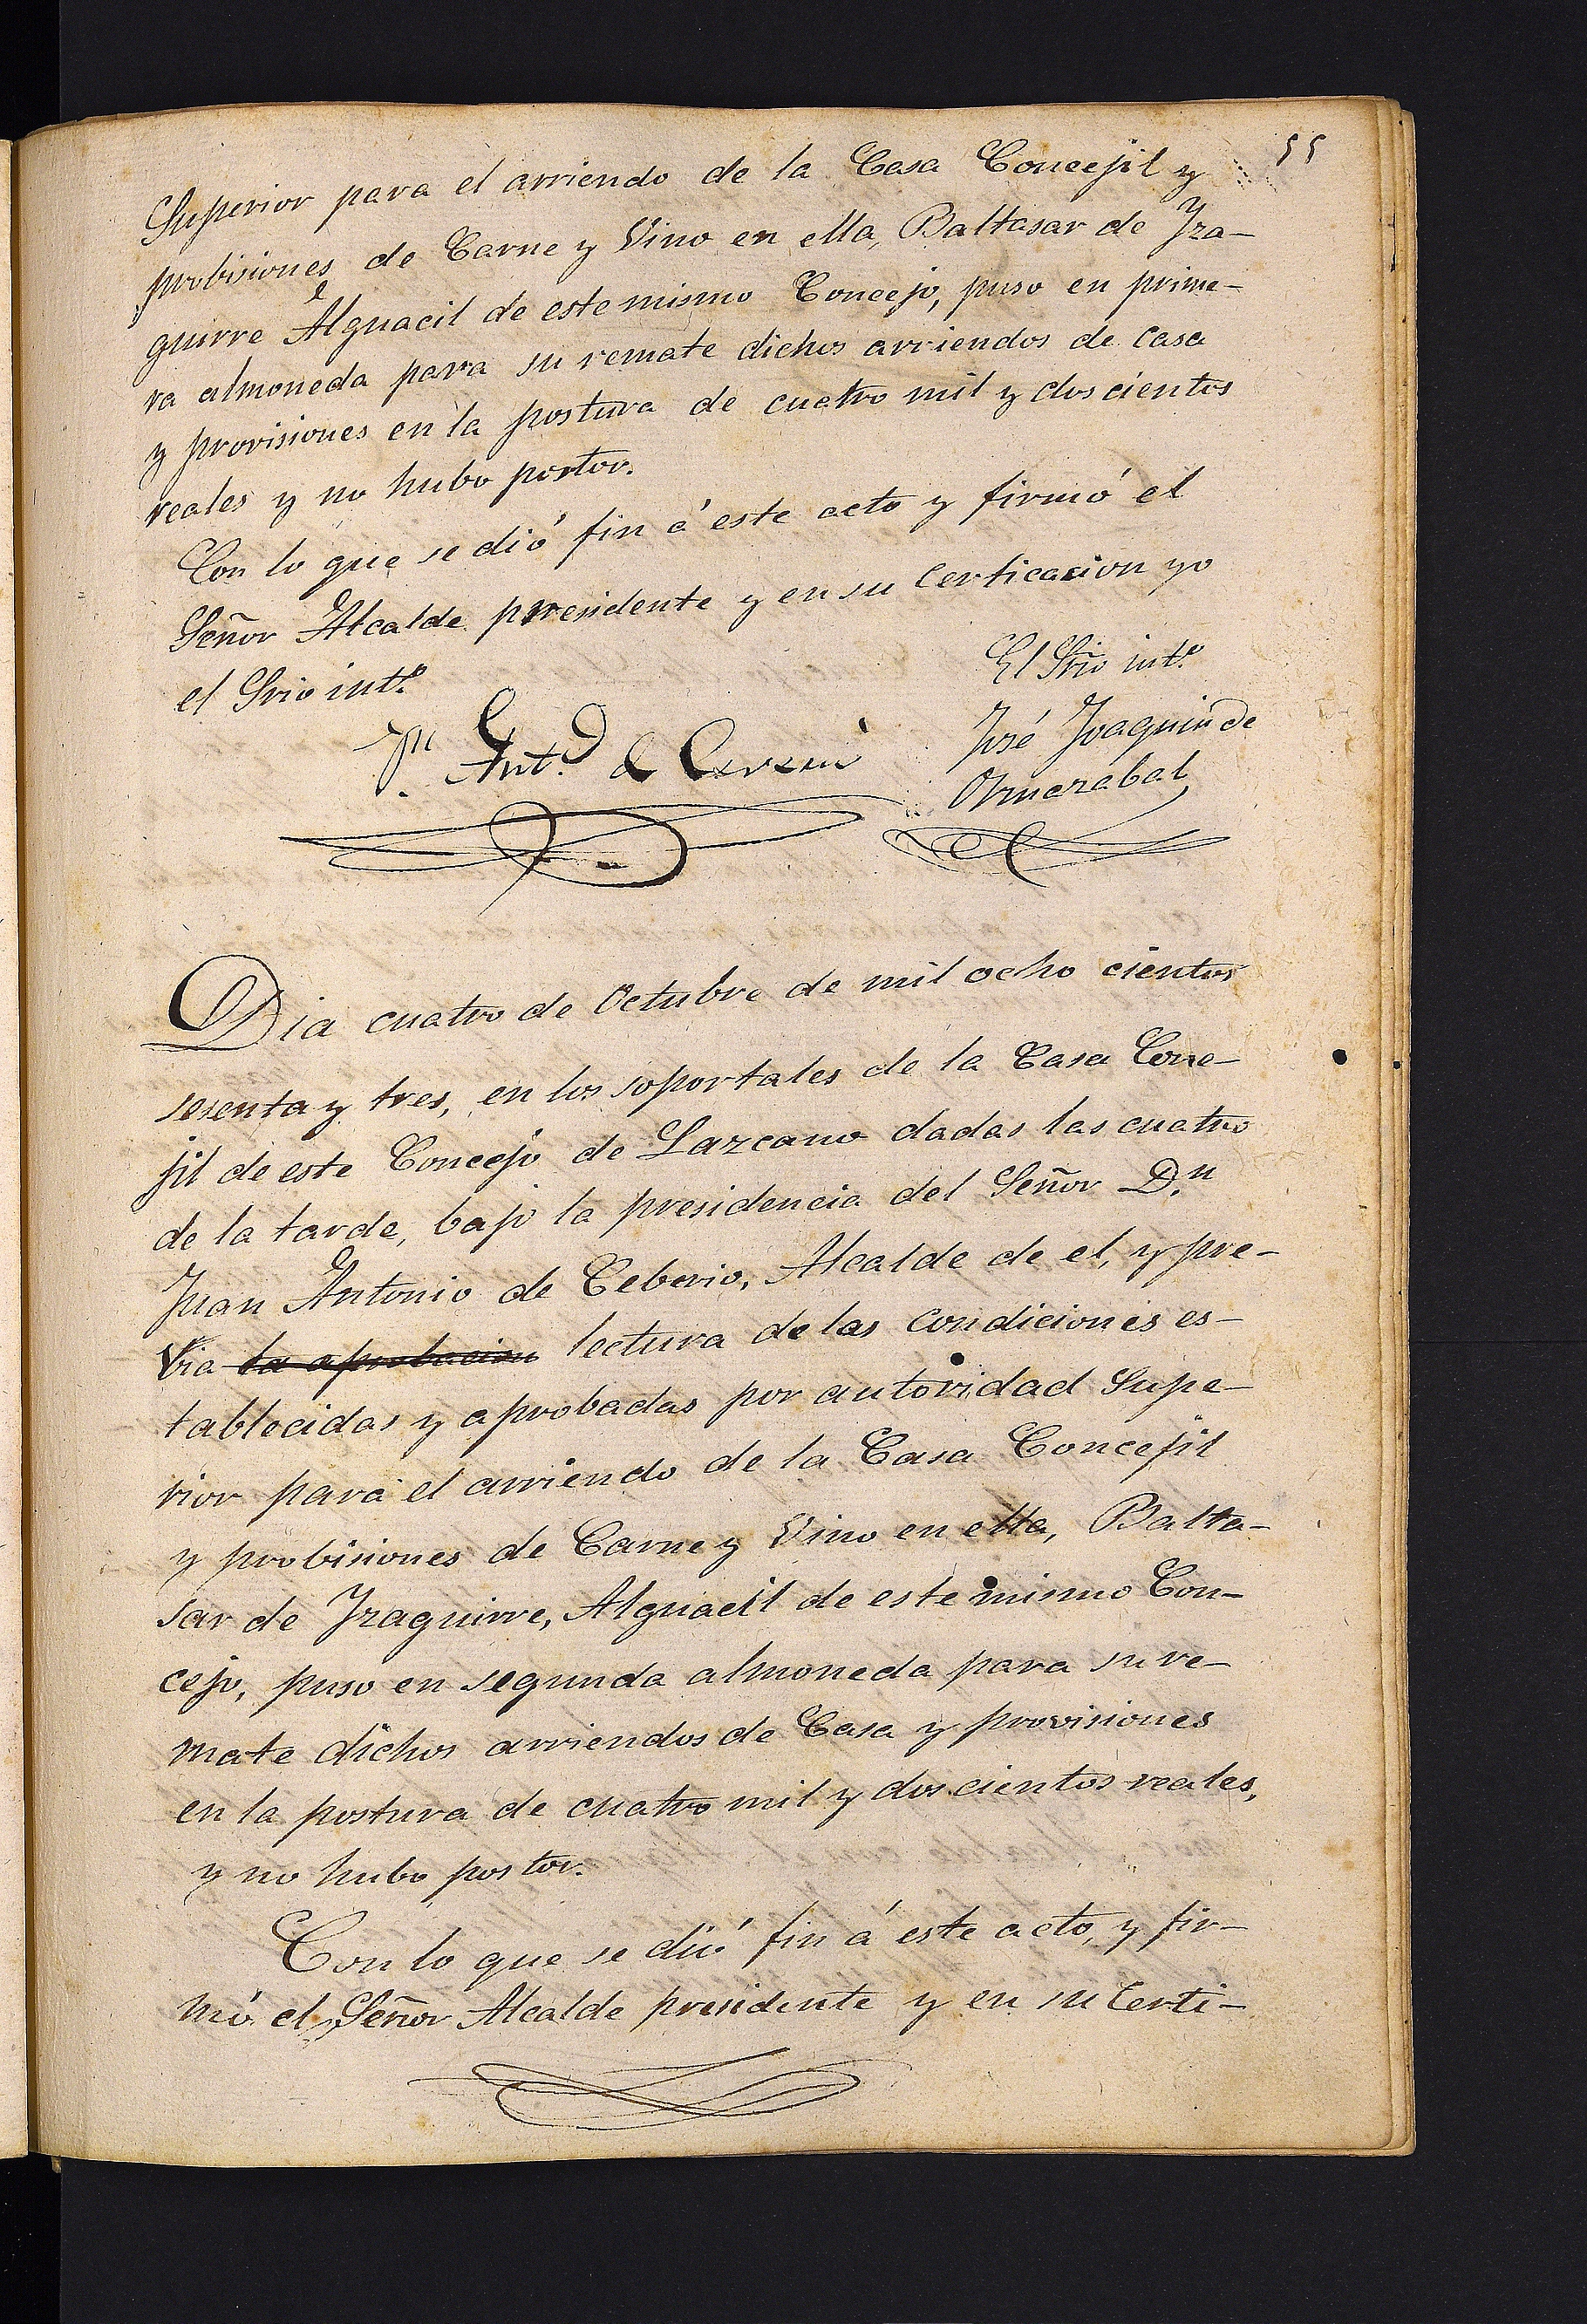 55
Superior para el arriendo de la Casa Concejil y
probisiones de Carne y Vino en ella, Baltasar de Yza-
guirre Alguacil de este mismo Concejo, puso en prime-
ra almoneda para su remate dichos arriendos de casa
y provisiones en la postura de cuatro mil y doscientos
reales y no hubo postor.
Con lo que se dió fin á este acto y firmó el
Señor Alcalde presidente y en su Certicacion yo
el Srio int.º
El Srio int.º
José Joaquin de
Jn Ant.º de
Dia cuatro de Octubre de mil ocho cientos
sesenta y tres, en los soportales de la Casa Conce-
jil de este Concejo de Lazcano dadas las cuatro
de la tarde, bajo la presidencia del Señor D.n
Juan Antonio de Ceberio, Alcalde de el, y pre-
via la aprobacion lectura de las condiciones es-
tablecidas y aprobadas por autoridad Supe-
rior para el arriendo de la Casa Concejil
y probisiones de Carne y Vino en ella, Balta-
sar de Yzaguirre, Alguacil de este mismo Con-
cejo, puso en segunda almoneda para su re-
mate dichos arriendos de Casa y provisiones
en la postura de cuatro mil y dos cientos reales,
y no hubo postor.
Con lo que se dió fin á este acto, y fir-
mó el Señor Alcalde presidente y en su Certi-